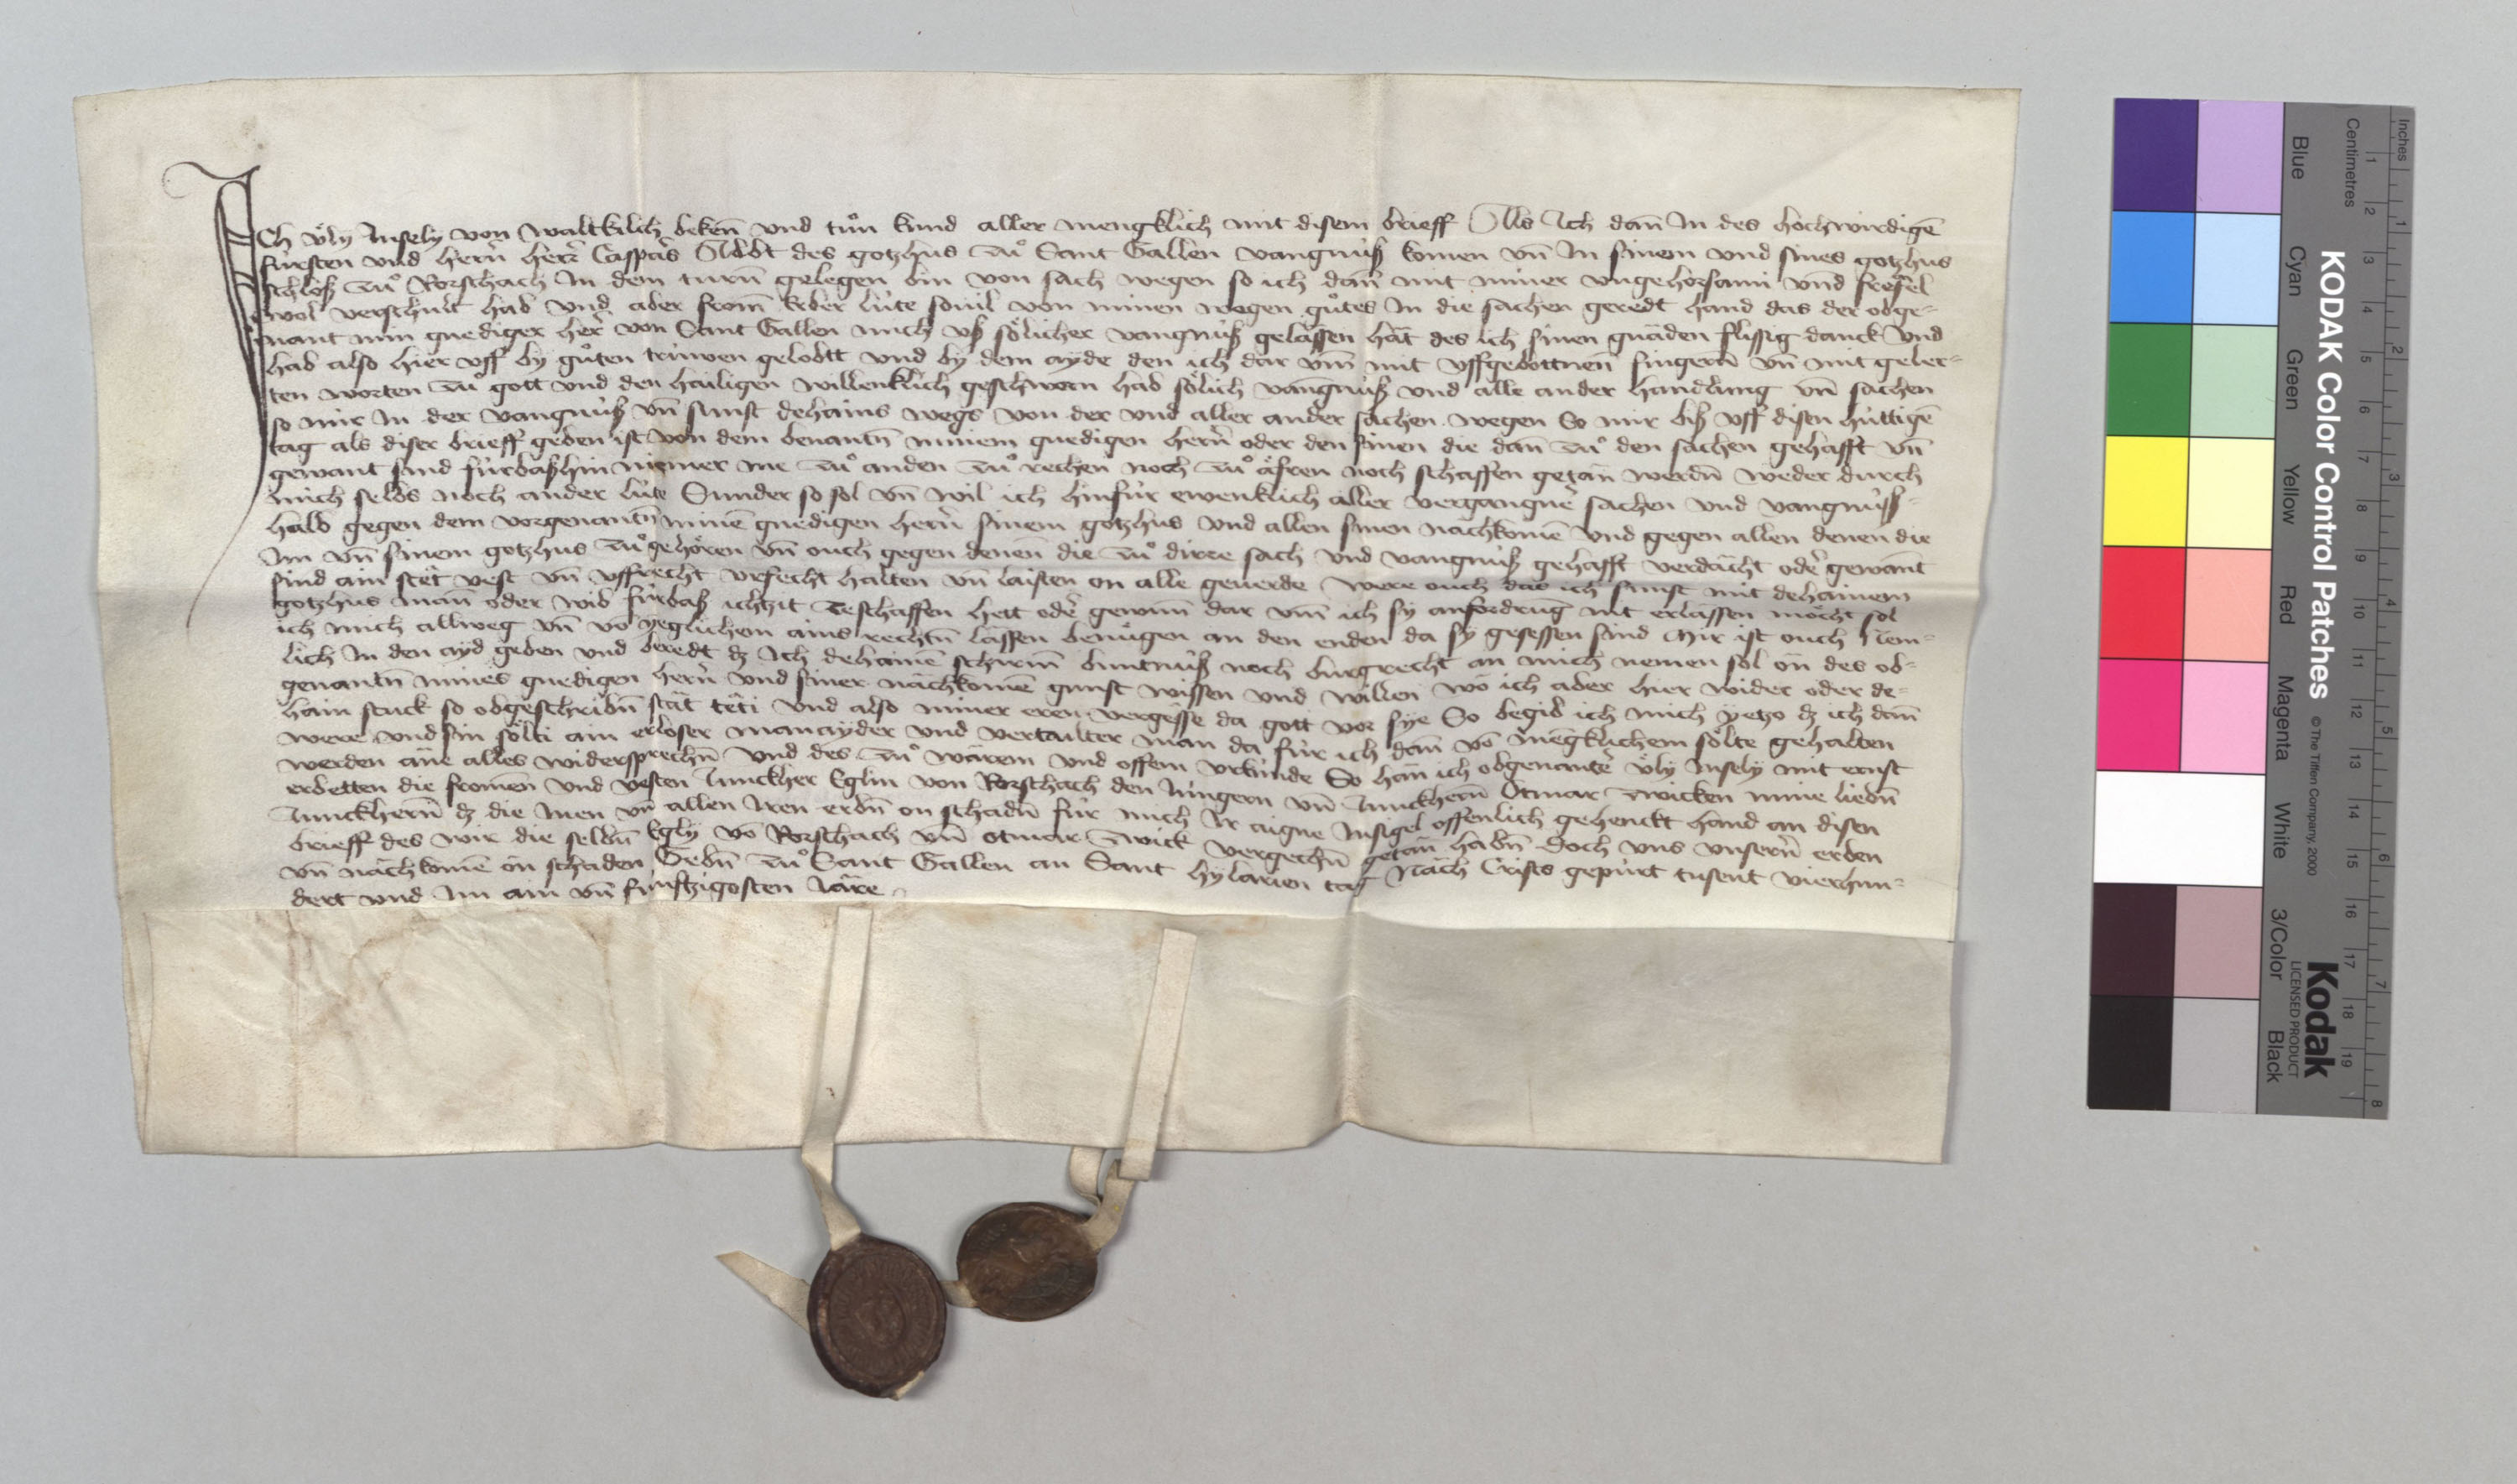 Ich ůly Insely von Waltkilch bekeñ und tůn kund aller mengklich mit disem brieff Als Ich dañ In des hochwirdigē
fürsten und herñ herr̃ Caspãrs Abbt des gotzhus zů Sant Gallen vangnúß komen vñ In sinem und sines gotzhus
schloß zů Rorschach In dem turñ gelegen bin von sach wegen so ich dañ mit miner ungehorsami und frefel
wol verschult hab und aber from̃ erber lúte souil von minen wegen gůtes In die sachen geredt hand das der obge=
nant min gnediger her̃ von Sant Gallen mich uß sölicher vangnúß gelässen hät des ich sinen gnäden flissig danck und
hab also hier uff by gůten trúwen gelobtt und by dem ayde den ich dar vm̃ mit uffgebottnen fingerñ vñ mit geler=
ten worten zů gott und den hailigen willenklich geschworn hab sölich vangnúß und alle ander handlung vñ sachen
so mir In der vangnúß vñ sunst dehains wegs von der und aller ander sachen wegen So mir biß uff disen húttigē
tag als diser brieff geben ist von dem benantñ minem gnedigen herñ oder den sinen die dañ zů den sachen gehafft vñ
gewant sind fúrbaßhin niemer me zů anden zů rechen noch zů äfren noch schaffen getän werdñ weder durch
mich selbs noch ander lúte Sunder so sol vñ wil ich hinfúr ewenklich aller vergangnē sachen und vangnúß=
halb gegen dem vorgenantñ minē gnedigen herñ sinem gotzhus und allen sinen nächkomē und gegen allen denen die
Im vñ sinem gotzhus zůgehören vñ ouch gegen denen die zů dirre sach und vangnúß gehafft verdächt oder̃ gewant
sind ain stet vest vñ uffrecht urfecht halten vñ laisten on alle geuerde were ouch das ich sunst mit dehainem
gotzhus man oder wib fúrbaß ichzit zeschaffen hett oder̃ gewunn dar vm̃ ich sy anfordrug nit erlässen möcht sol
ich mich allweg vñ vō yeglichem ains rechtñ lässen benúgen an den enden da sy gesessen sind Mir ist ouch Nem=
lich In den ayd geben und beredt dz Ich dehainē schirm̃ buntnúß noch burgrecht an mich nemen sol on des ob=
genantñ mines gnedigen herñ und siner nächkomē gunst wissen und willen wo ich aber hier wider oder de=
hain stuck so obgeschribñ stät teti und also miner eren vergesse da gott vor sye So begib ich mich yetzo dz ich dañ
were und sin sölti ain erloser manayder und vertailter man da fúr ich dañ vō mēgklichem sölte gehalten
werden äne alles widersprechñ und des zů wärem und offem urkúnde So hän ich obgenantē ůly Insely mit ernst
erbetten die fromen und vesten Junckher Eglin von Rorschach den Júngern vñ Junckherñ Otmar Zwicken mine liebñ
Junckherñ dz die Inen vñ allen Iren erbñ on schadñ fúr mich Ir aigne Insigel offenlich gehenckt hand an disen
brieff des wir die selbñ Egly vō Rorschach vñ Otmar Zwick vergechñ getän habñ doch uns unserñ erben
vñ nächkomē on schaden Gebñ zů Sant Gallen an Sant hylarien tag Näch Cristz gepúrt tusent vierhun=
dert und Im ain vñ fúnftzigosten Järe
KODAK Color Control Patches © The Tiffen Company, 2000
Kodak
LICENSED PRODUCT
Inches 1 2 3 4 5 6 7 8
Centimetres 1 2 3 4 5 6 7 8 9 10 11 12 13 14 15 16 17 18 19
Blue Cyan Green Yellow Red Magenta White 3/Color Black